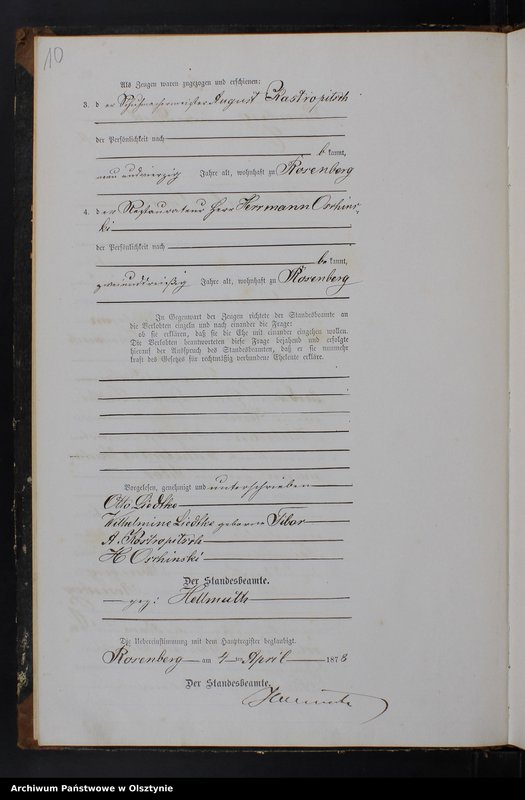 10
Als Zeugen waren zugezogen und erschienen:
3. der Schuhmachermeister August Kastropitsch
der Persönlichkeit nach
be kannt,
neun und vierzig Jahre alt, wohnhaft zu Rosenberg
4. der Restaurateur Herr Herrmann Oschins-
ki
der Persönlichkeit nach
be kannt,
zweiunddreißig Jahre alt, wohnhaft zu Rosenberg
In Gegenwart der Zeugen richtete der Standesbeamte an
die Verlobten einzeln und nach einander die Frage:
ob sie erklären, daß sie die Ehe mit einander eingehen wollen.
Die Verlobten beantworteten diese Frage bejahend und erfolgte
hierauf der Ausspruch des Standesbeamten, daß er sie nunmehr
kraft des Gesetzes für rechtmäßig verbundene Eheleute erkläre.
Vorgelesen, genehmigt und unterschrieben
Otto Liedtke
Wilhelmine Liedtke geborene Tibor
A. Kastropitsch
H Oschinski
Der Standesbeamte.
gez: Hellmuth
Die Uebereinstimmung mit dem Hauptregister beglaubigt.
Rosenberg am 4 ten April 1878
Der Standesbeamte.
Hellmuth
Archiwum Państwowe w Olsztynie